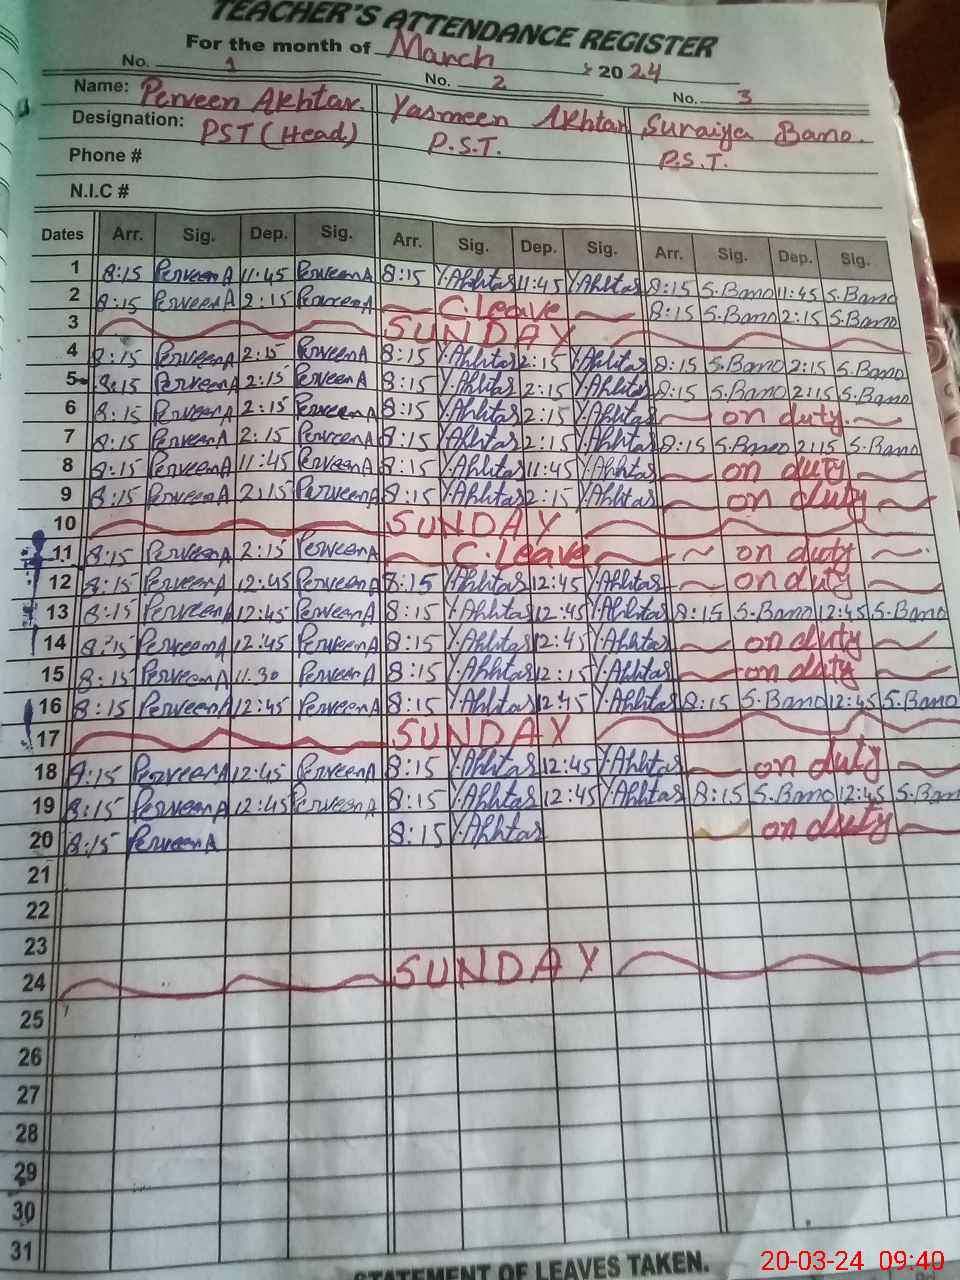 TEACHER'S ATTENDANCE REGISTER
For the month of March 2024
No. 1 No. 2 No. 3
Name: Perveen Akhtar. Yasmeen Akhtar Suraiya Bano.
Designation: PST (Head) P.S.T. P.S.T.
Phone #
N.I.C #
Dates Arr. Sig. Dep. Sig. Arr. Sig. Dep. Sig. Arr. Sig. Dep. Sig.
1 8:15 PerveenA 11:45 PerveenA 8:15 Y.Akhtar 11:45 Y.Akhtar 8:15 S.Bano 11:45 S.Bano
2 8:15 PerveenA 2:15 PerveenA C.Leave 8:15 S.Bano 2:15 S.Bano
3 SUNDAY
4 8:15 PerveenA 2:15 PerveenA 8:15 Y.Akhtar 2:15 Y.Akhtar 8:15 S.Bano 2:15 S.Bano
5 8:15 PerveenA 2:15 PerveenA 8:15 Y.Akhtar 2:15 Y.Akhtar 8:15 S.Bano 2:15 S.Bano
6 8:15 PerveenA 2:15 PerveenA 8:15 Y.Akhtar 2:15 Y.Akhtar on duty.
7 8:15 PerveenA 2:15 PerveenA 8:15 Y.Akhtar 2:15 Y.Akhtar 8:15 S.Bano 2:15 S.Bano
8 8:15 PerveenA 11:45 PerveenA 8:15 Y.Akhtar 11:45 Y.Akhtar on duty
9 8:15 PerveenA 2:15 PerveenA 8:15 Y.Akhtar 2:15 Y.Akhtar on duty
10 SUNDAY
11 8:15 PerveenA 2:15 PerveenA C.Leave on duty
12 8:15 PerveenA 12:45 PerveenA 8:15 Y.Akhtar 12:45 Y.Akhtar on duty
13 8:15 PerveenA 12:45 PerveenA 8:15 Y.Akhtar 12:45 Y.Akhtar 8:15 S.Bano 12:45 S.Bano
14 8:15 PerveenA 12:45 PerveenA 8:15 Y.Akhtar 12:45 Y.Akhtar on duty
15 8:15 PerveenA 11.30 PerveenA 8:15 Y.Akhtar 12:15 Y.Akhtar on duty
16 8:15 PerveenA 12:45 PerveenA 8:15 Y.Akhtar 12:45 Y.Akhtar 8:15 S.Bano 12:45 S.Bano
17 SUNDAY
18 8:15 PerveenA 12:45 PerveenA 8:15 Y.Akhtar 12:45 Y.Akhtar on duty
19 8:15 PerveenA 12:45 PerveenA 8:15 Y.Akhtar 12:45 Y.Akhtar 8:15 S.Bano 12:45 S.Bano
20 8:15 PerveenA 8:15 Y.Akhtar on duty
21
22
23
24 SUNDAY
25
26
27
28
29
30
31
STATEMENT OF LEAVES TAKEN.
20-03-24 09:40